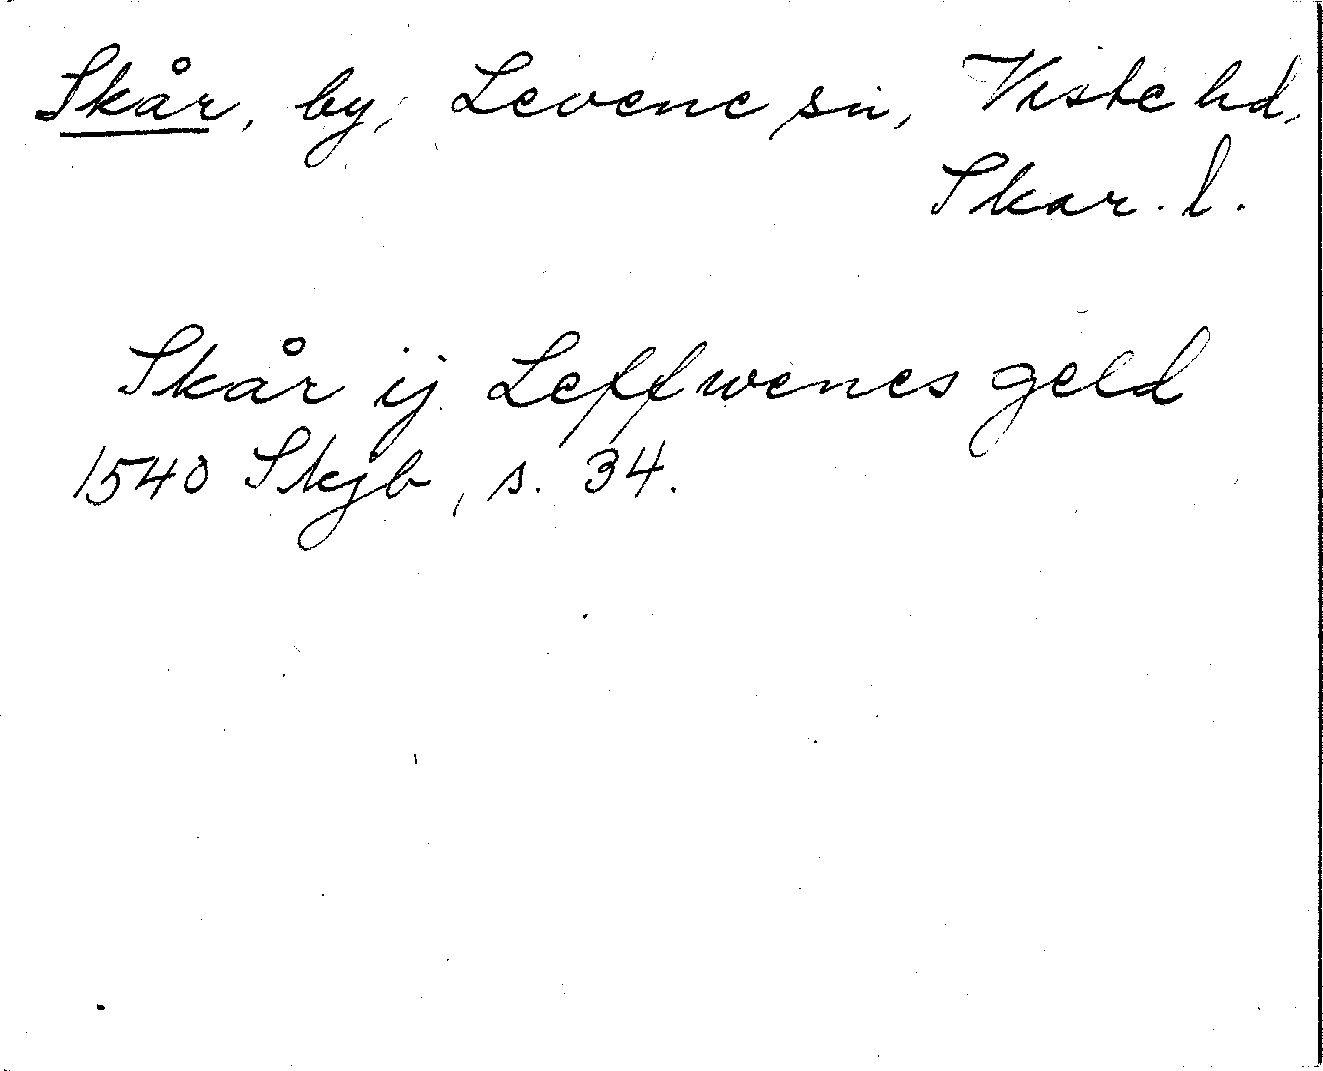 Skår, by, Levene sn, Viste hd,
Skar. l.
Skår ij Leffwenes geld
1540 Skjb, s. 34.